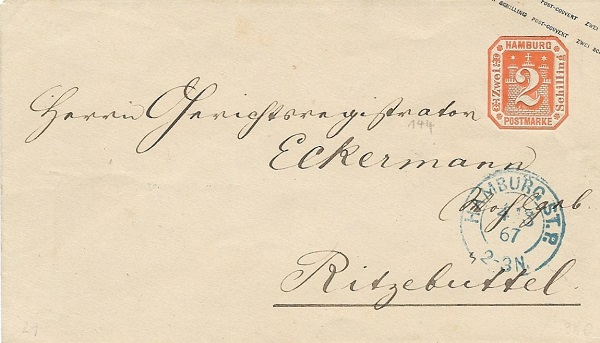 POST-COUVERT ZWEI
SCHILLING POST-COUVERT ZWEI SC
HAMBURG
Zwei 2 Schilling
POSTMARKE
Herrn Gerichtsregistrator
144
Eckermann
HAMBURG ST. P.
4
67
2-3N.
Ritzebüttel